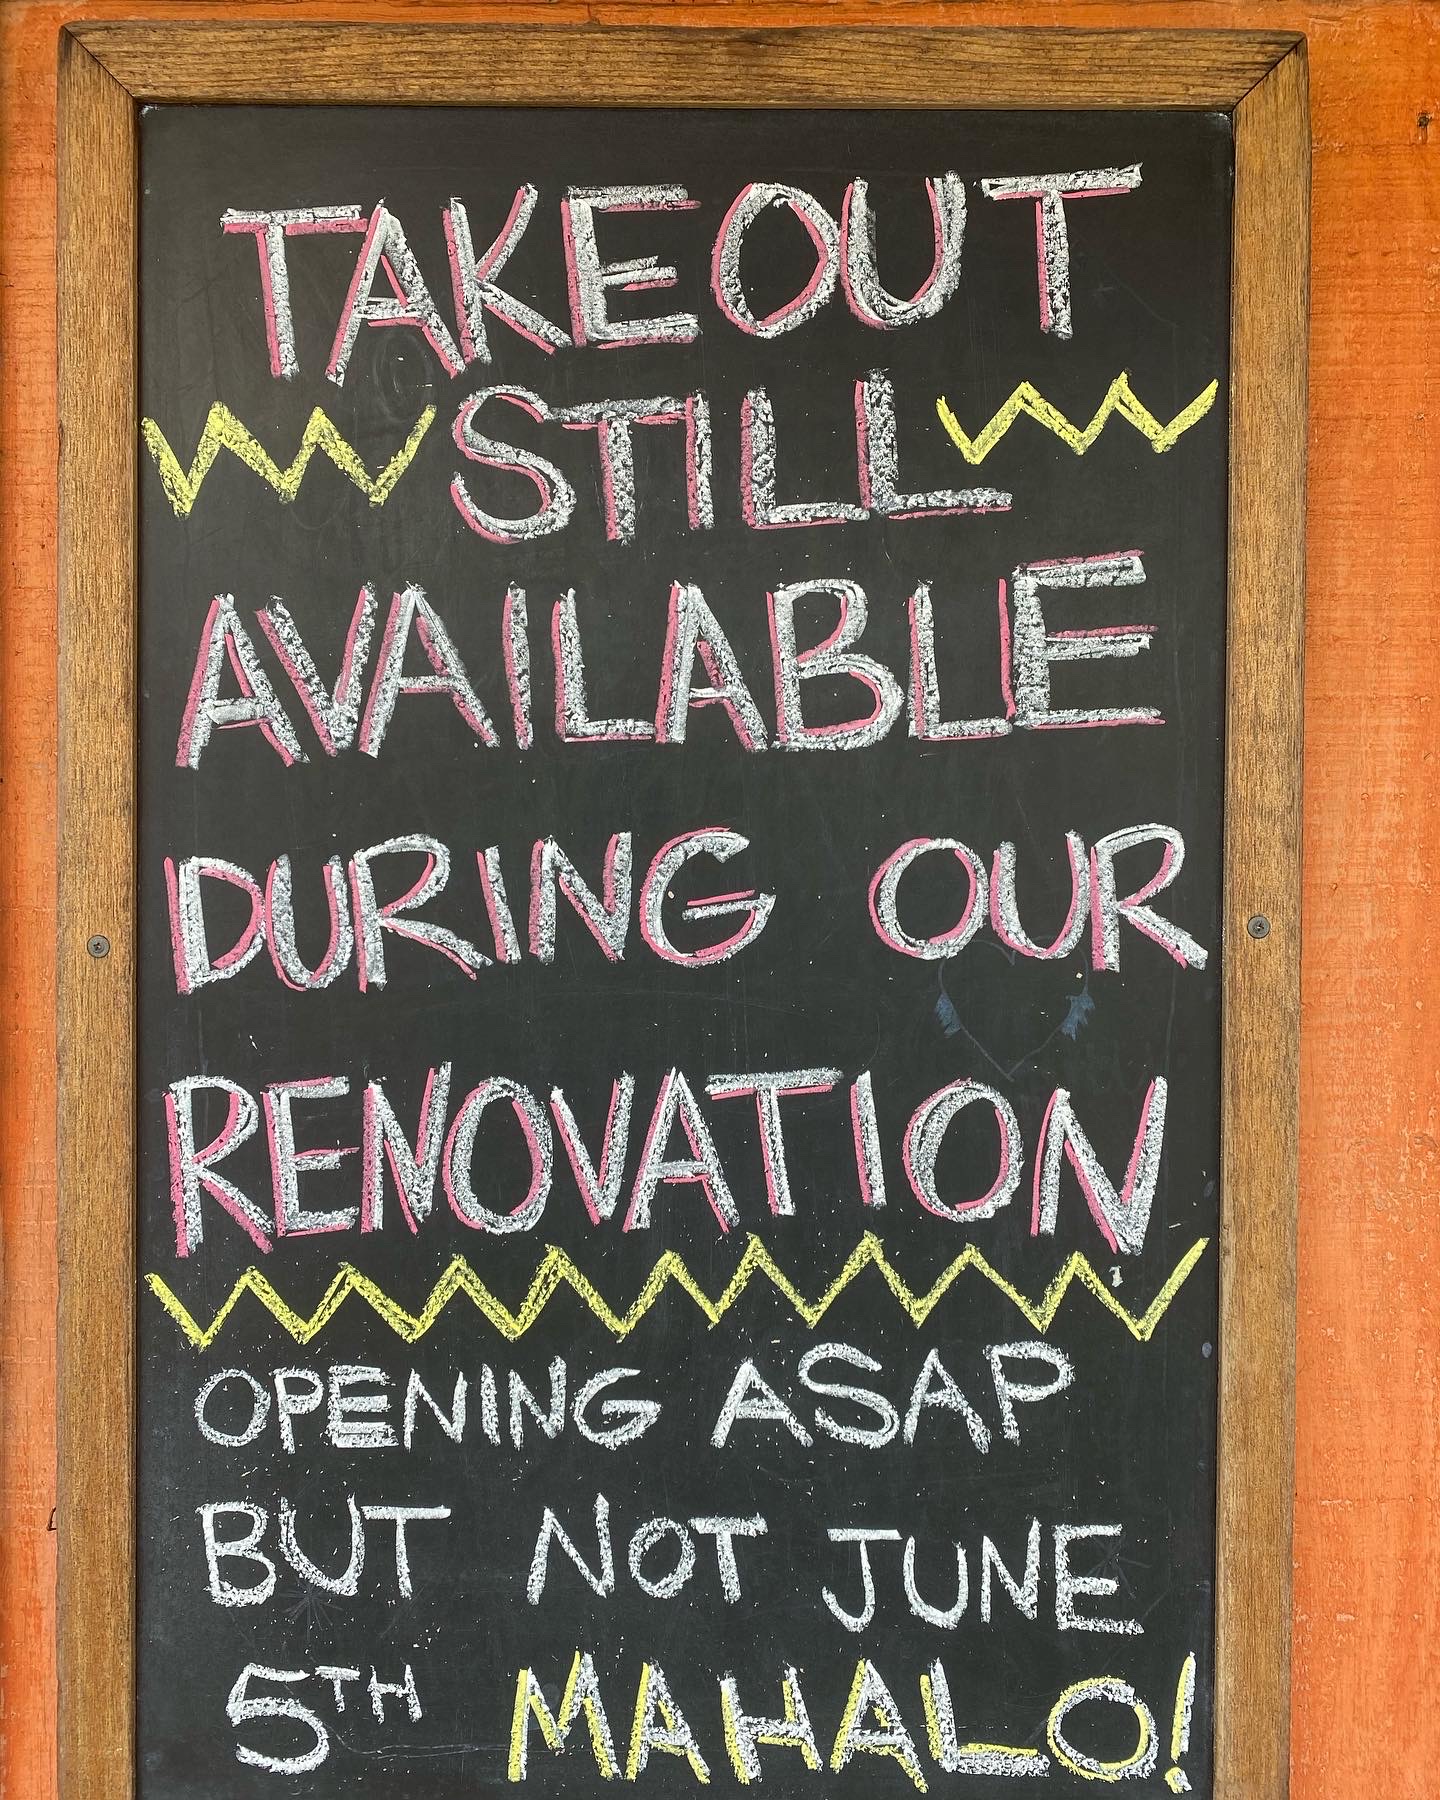 TAKEOUT
STILL
AVAILABLE
DURING OUR
RENOVATION
OPENING ASAP
BUT NOT JUNE
5TH MAHALO!